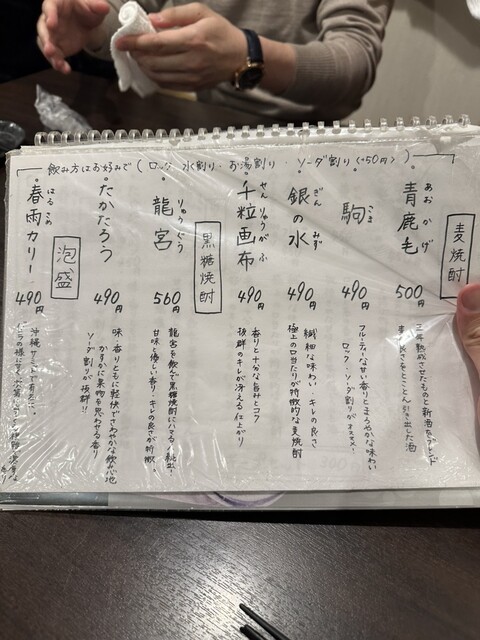 飲み方はお好みで(ロック・水割り・お湯割り・ソーダ割り(+50円))
麦焼酎
あおかげ
青鹿毛
500円
三年熟成させたものと新酒をブレンド
麦の良さをとことん引き出した酒
こま
駒
490円
フルーティーな甘い香りとまろやかな味わい
ロック・ソーダ割りがオススメ!
ぎんみず
銀の水
490円
繊細な味わい・キレの良さ
極上の口当たりが特徴的な麦焼酎
せんりゅうがふ
千粒画布
490円
香りと十分な旨みとコク
抜群のキレが冴える仕上がり
黒糖焼酎
りゅうぐう
龍宮
560円
龍宮を飲んで黒糖焼酎にハマる人続出!
甘味・優しい香り・キレの良さが特徴
たかたろう
490円
味・香りともに軽快でさわやかな飲み心地
かすかに果物を思わせる香り
ソーダ割りが抜群!!
泡盛
はるさめ
春雨カリー
490円
沖縄サミットで
バニラの様に甘く